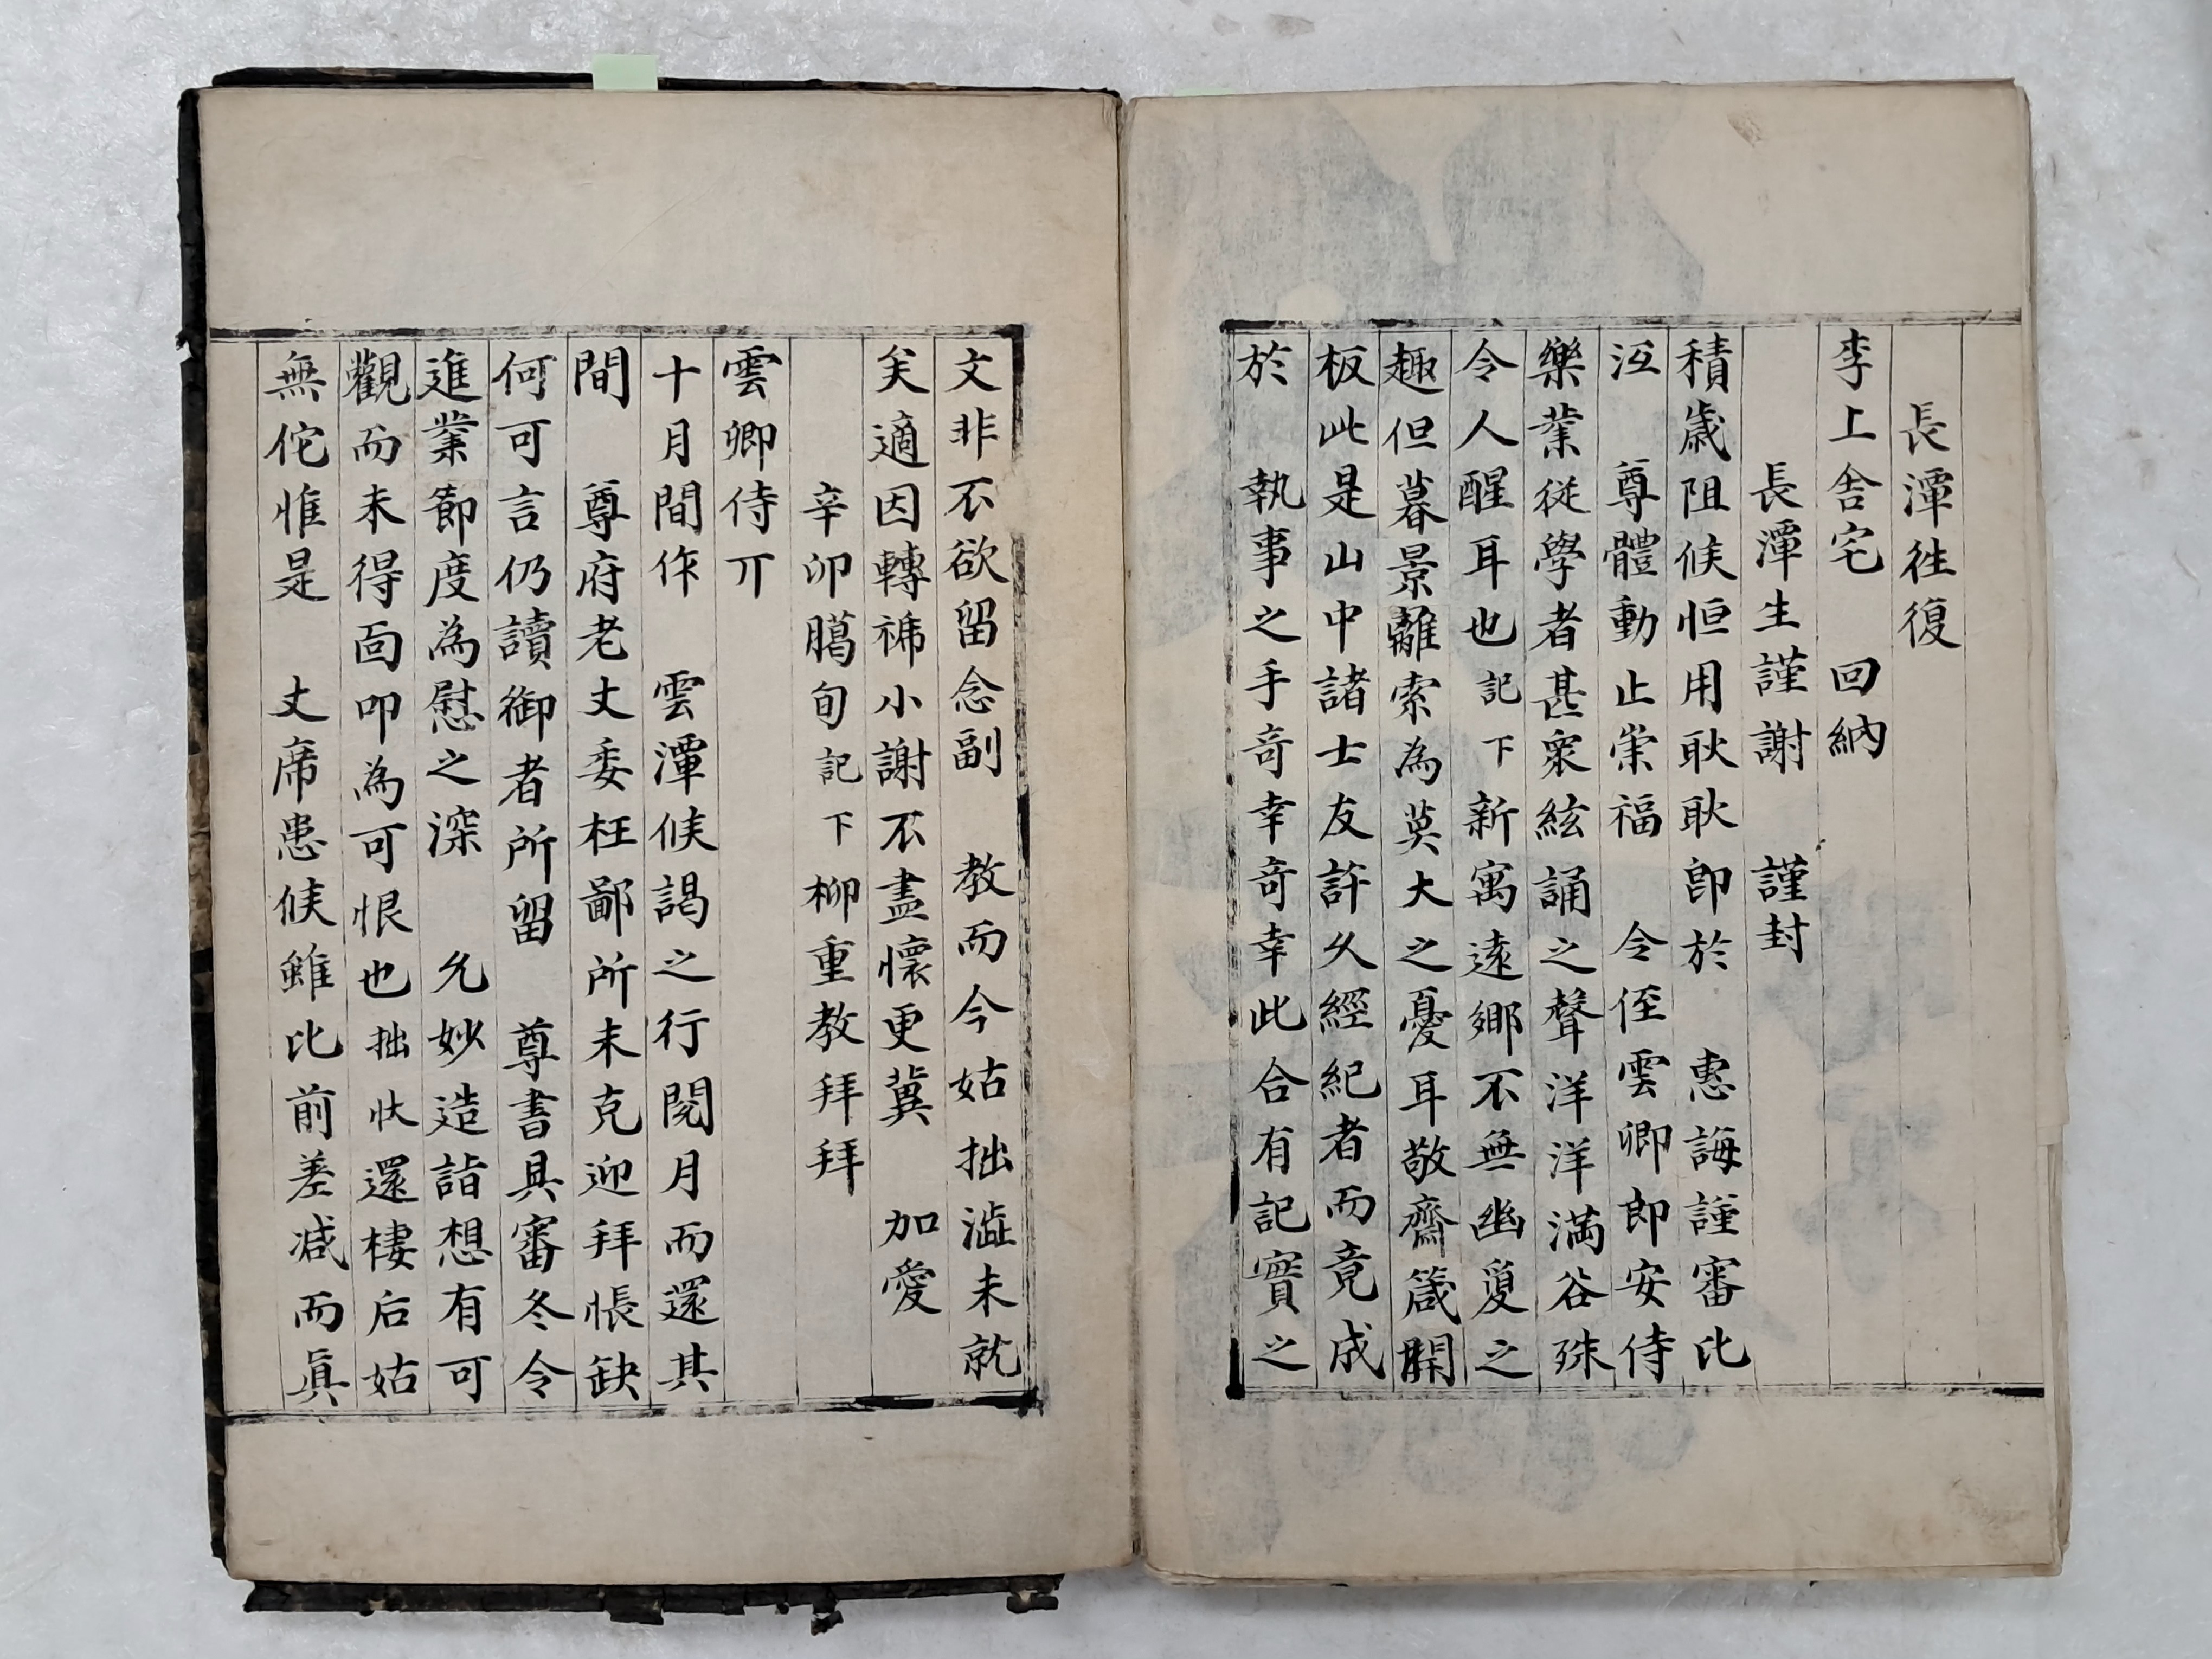 長潭徃復
李上舍宅　回納
長潭生謹謝　謹封
積歲阻候恒用耿耿卽於　惠誨謹審比
沍　尊體動止崇福　令侄雲卿卽安侍
樂業從學者甚衆絃誦之聲洋洋滿谷殊
令人醒耳也記下新寓遠鄕不無幽夐之
趣但暮景離索為莫大之憂耳敬齋箴開
板此是山中諸士友許久經紀者而竟成
於　執事之手竒幸竒幸此合有記實之
文非不欲留念副　教而今姑拙澁未就
矣適因轉褫小謝不盡懷更冀　加愛
辛卯臈旬記下柳重教拜拜
雲卿侍丌
十月間作　雲潭候謁之行閱月而還其
間　尊府老丈委枉鄙所未克迎拜悵缺
何可言仍讀御者所留　尊書具審冬令
進業節度為慰之深　允妙造詣想有可
觀而未得面叩為可恨也拙狀還棲后姑
無佗惟是　丈席患候雖比前差減而眞